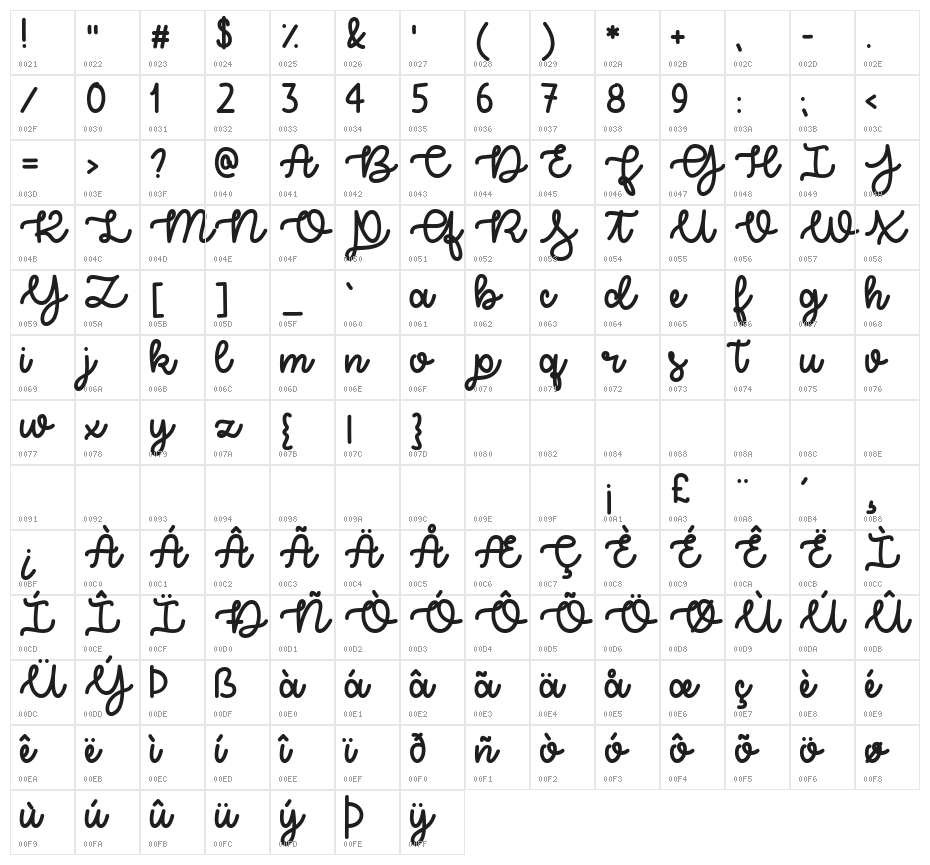 ! " # $ % & ' ( ) * + , - .
0021 0022 0023 0024 0025 0026 0027 0028 0029 002A 002B 002C 002D 002E
/ 0 1 2 3 4 5 6 7 8 9 : ; <
002F 0030 0031 0032 0033 0034 0035 0036 0037 0038 0039 003A 003B 003C
= > ? @ A B C D E F G H I J
003D 003E 003F 0040 0041 0042 0043 0044 0045 0046 0047 0048 0049 004A
K L M N O P Q R S T U V W X
004B 004C 004D 004E 004F 0050 0051 0052 0053 0054 0055 0056 0057 0058
Y Z [ ] _ ` a b c d e f g h
0059 005A 005B 005D 005F 0060 0061 0062 0063 0064 0065 0066 0067 0068
i j k l m n o p q r s t u v
0069 006A 006B 006C 006D 006E 006F 0070 0071 0072 0073 0074 0075 0076
w x y z { | }
0077 0078 0079 007A 007B 007C 007D 0080 0082 0084 0088 008A 008C 008E
¡ £ ¨ ´ ¸
0091 0092 0093 0094 0098 009A 009C 009E 009F 00A1 00A3 00A8 00B4 00B8
¿ À Á Â Ã Ä Å Æ Ç È É Ê Ë Ì
00BF 00C0 00C1 00C2 00C3 00C4 00C5 00C6 00C7 00C8 00C9 00CA 00CB 00CC
Í Î Ï Ð Ñ Ò Ó Ô Õ Ö Ø Ù Ú Û
00CD 00CE 00CF 00D0 00D1 00D2 00D3 00D4 00D5 00D6 00D8 00D9 00DA 00DB
Ü Ý Þ ß à á â ã ä å æ ç è é
00DC 00DD 00DE 00DF 00E0 00E1 00E2 00E3 00E4 00E5 00E6 00E7 00E8 00E9
ê ë ì í î ï ð ñ ò ó ô õ ö ø
00EA 00EB 00EC 00ED 00EE 00EF 00F0 00F1 00F2 00F3 00F4 00F5 00F6 00F8
ù ú û ü ý þ ÿ
00F9 00FA 00FB 00FC 00FD 00FE 00FF